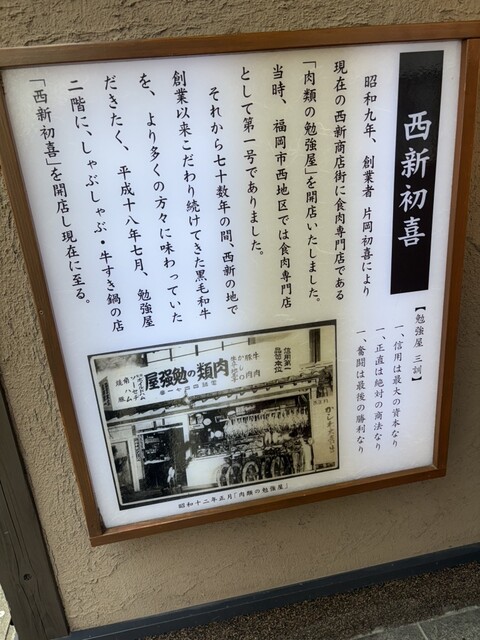 西新初喜
【勉強屋 三訓】
一、信用は最大の資本なり
一、正直は絶対の商法なり
一、奮闘は最後の勝利なり
昭和九年、創業者 片岡初喜により
現在の西新商店街に食肉専門店である
「肉類の勉強屋」を開店いたしました。
当時、福岡市西地区では食肉専門店
として第一号でありました。
それから七十数年の間、西新の地で
創業以来こだわり続けてきた黒毛和牛
を、より多くの方々に味わっていた
だきたく、平成十八年七月、勉強屋
二階に、しゃぶしゃぶ・牛すき鍋の店
「西新初喜」を開店し現在に至る。
信用第一
屋強勉の類肉
昭和十二年正月「肉類の勉強屋」